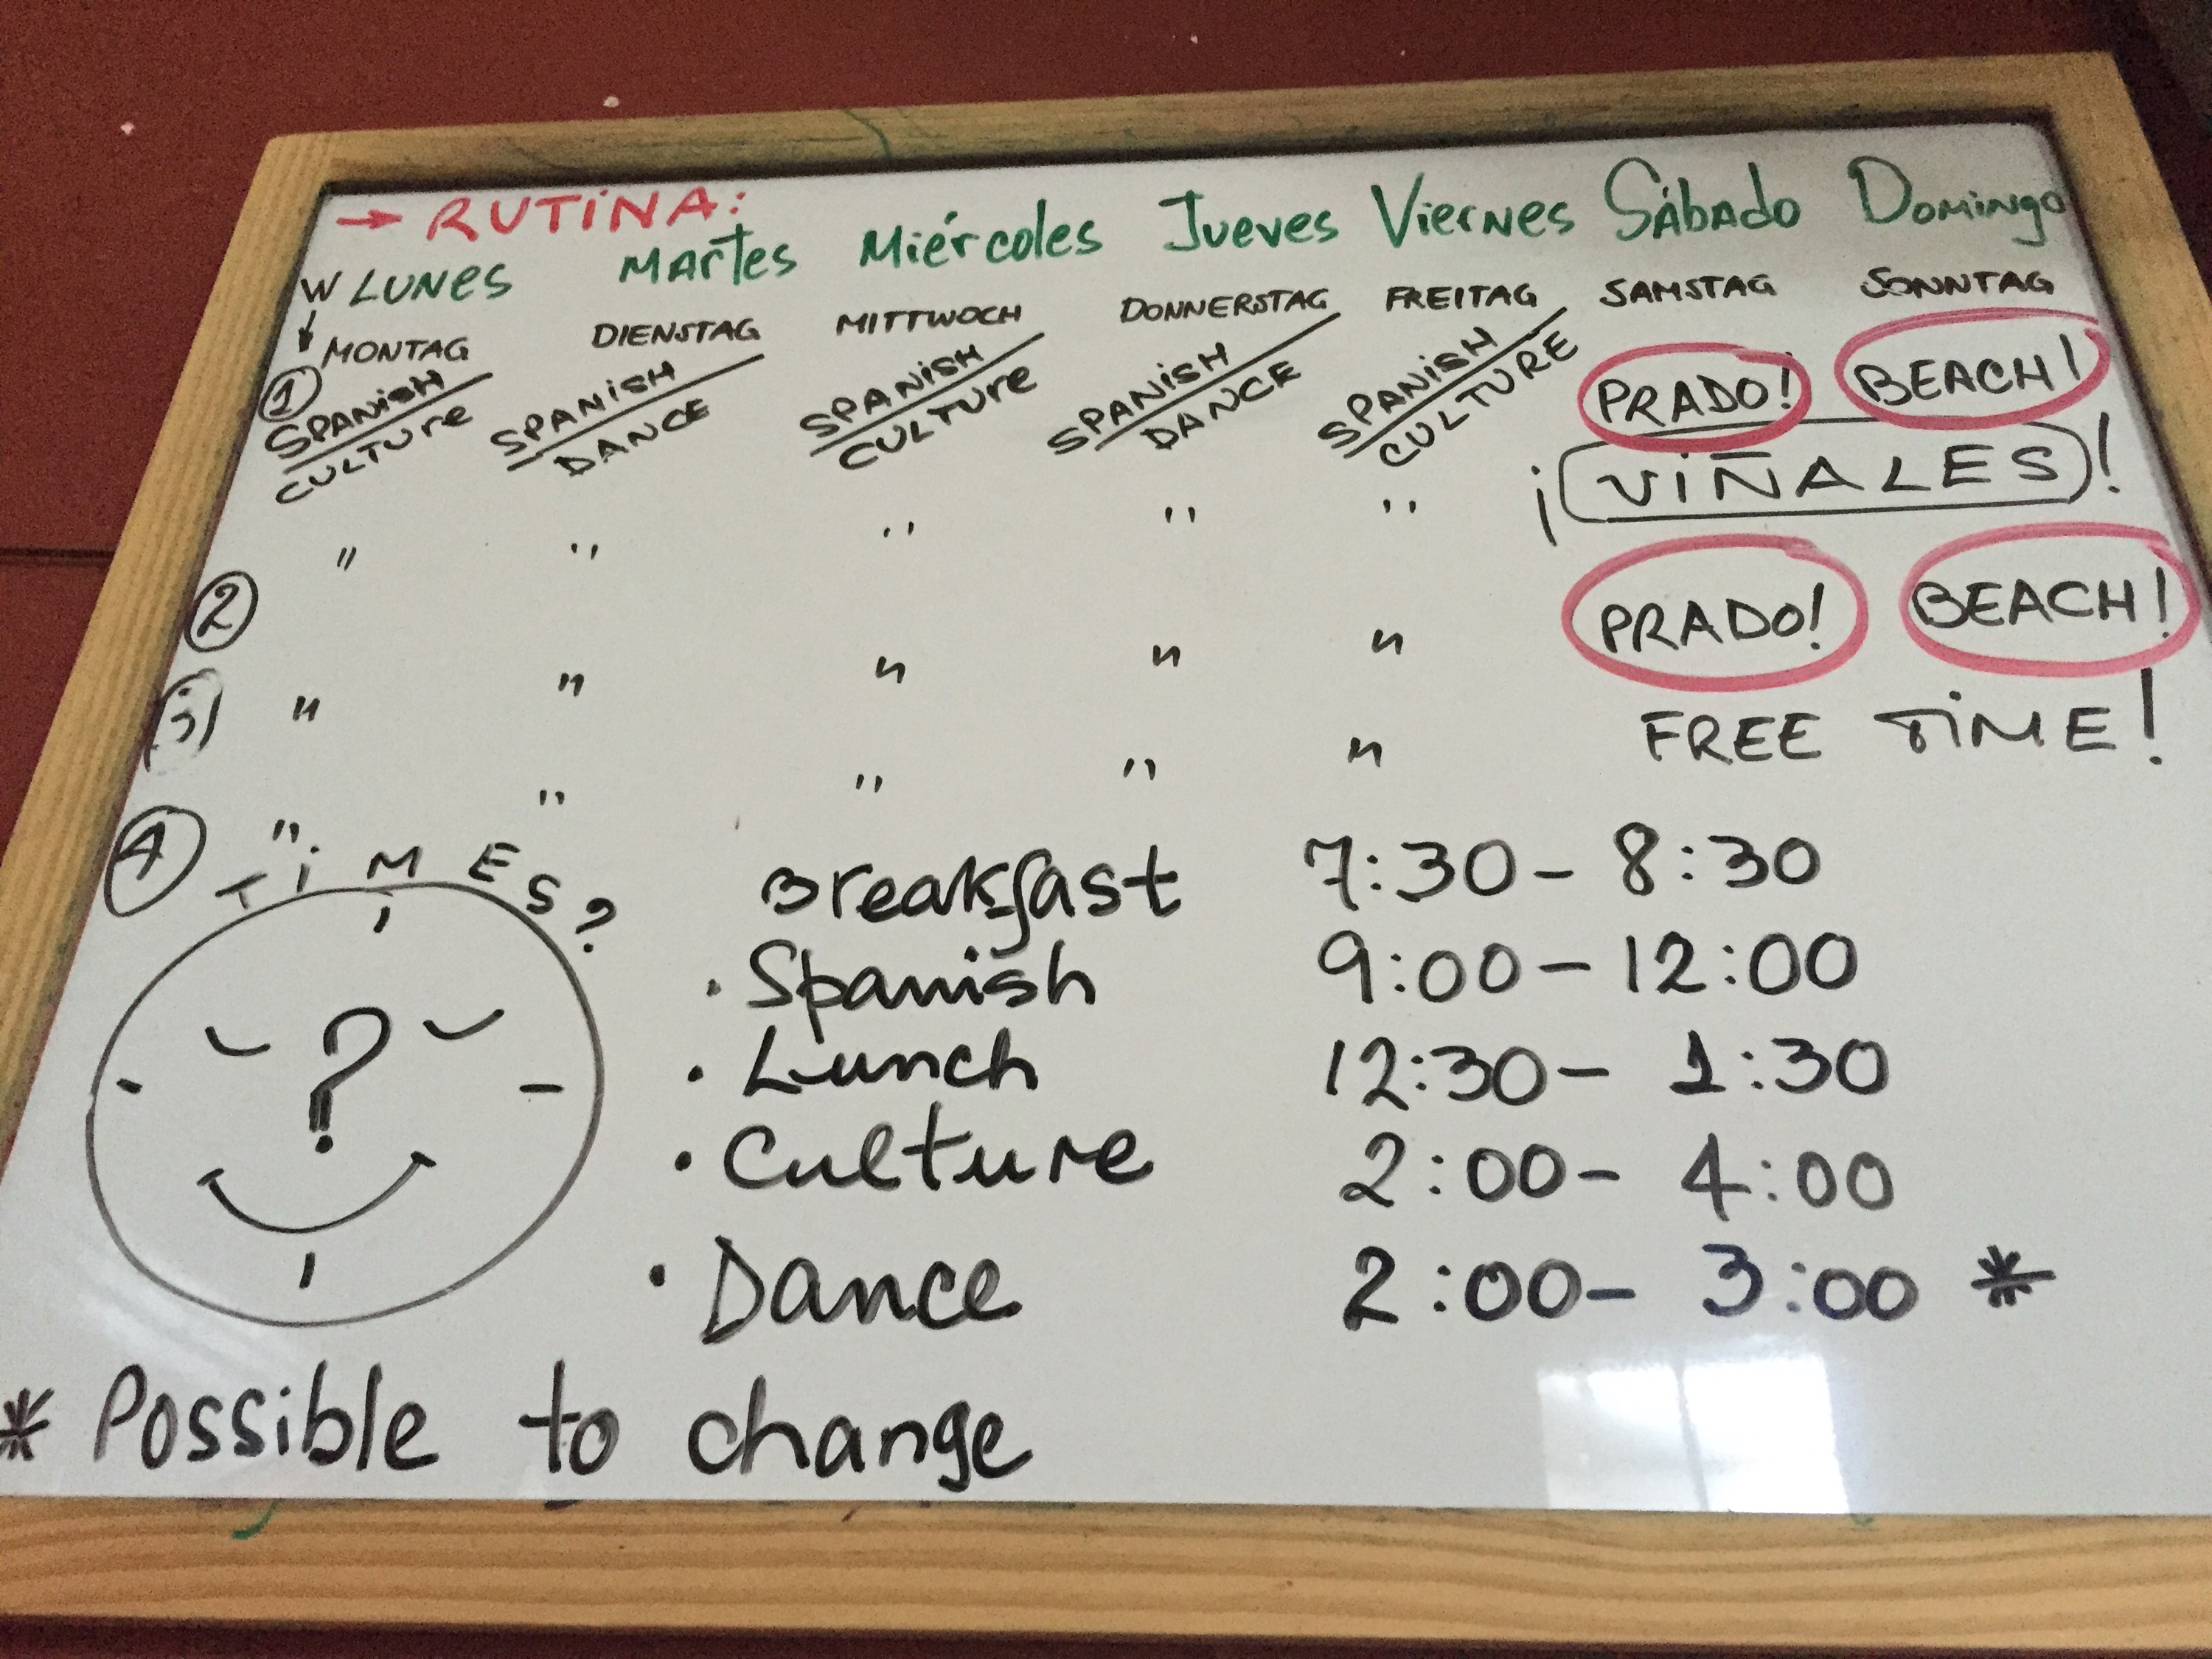 → RUTINA:
W LUNES MARTES Miércoles Jueves Viernes Sábado Domingo
MONTAG DIENSTAG MITTWOCH DONNERSTAG FREITAG SAMSTAG SONNTAG
① SPANISH SPANISH SPANISH SPANISH SPANISH PRADO! BEACH!
CULTURE DANCE CULTURE DANCE CULTURE
② " " " " " ¡VIÑALES!
③ " " " " " PRADO! BEACH!
④ " " " " " FREE TIME!
TIMES?
?
Breakfast 7:30 - 8:30
· Spanish 9:00 - 12:00
· Lunch 12:30 - 1:30
· Culture 2:00 - 4:00
· Dance 2:00 - 3:00 *
* Possible to change